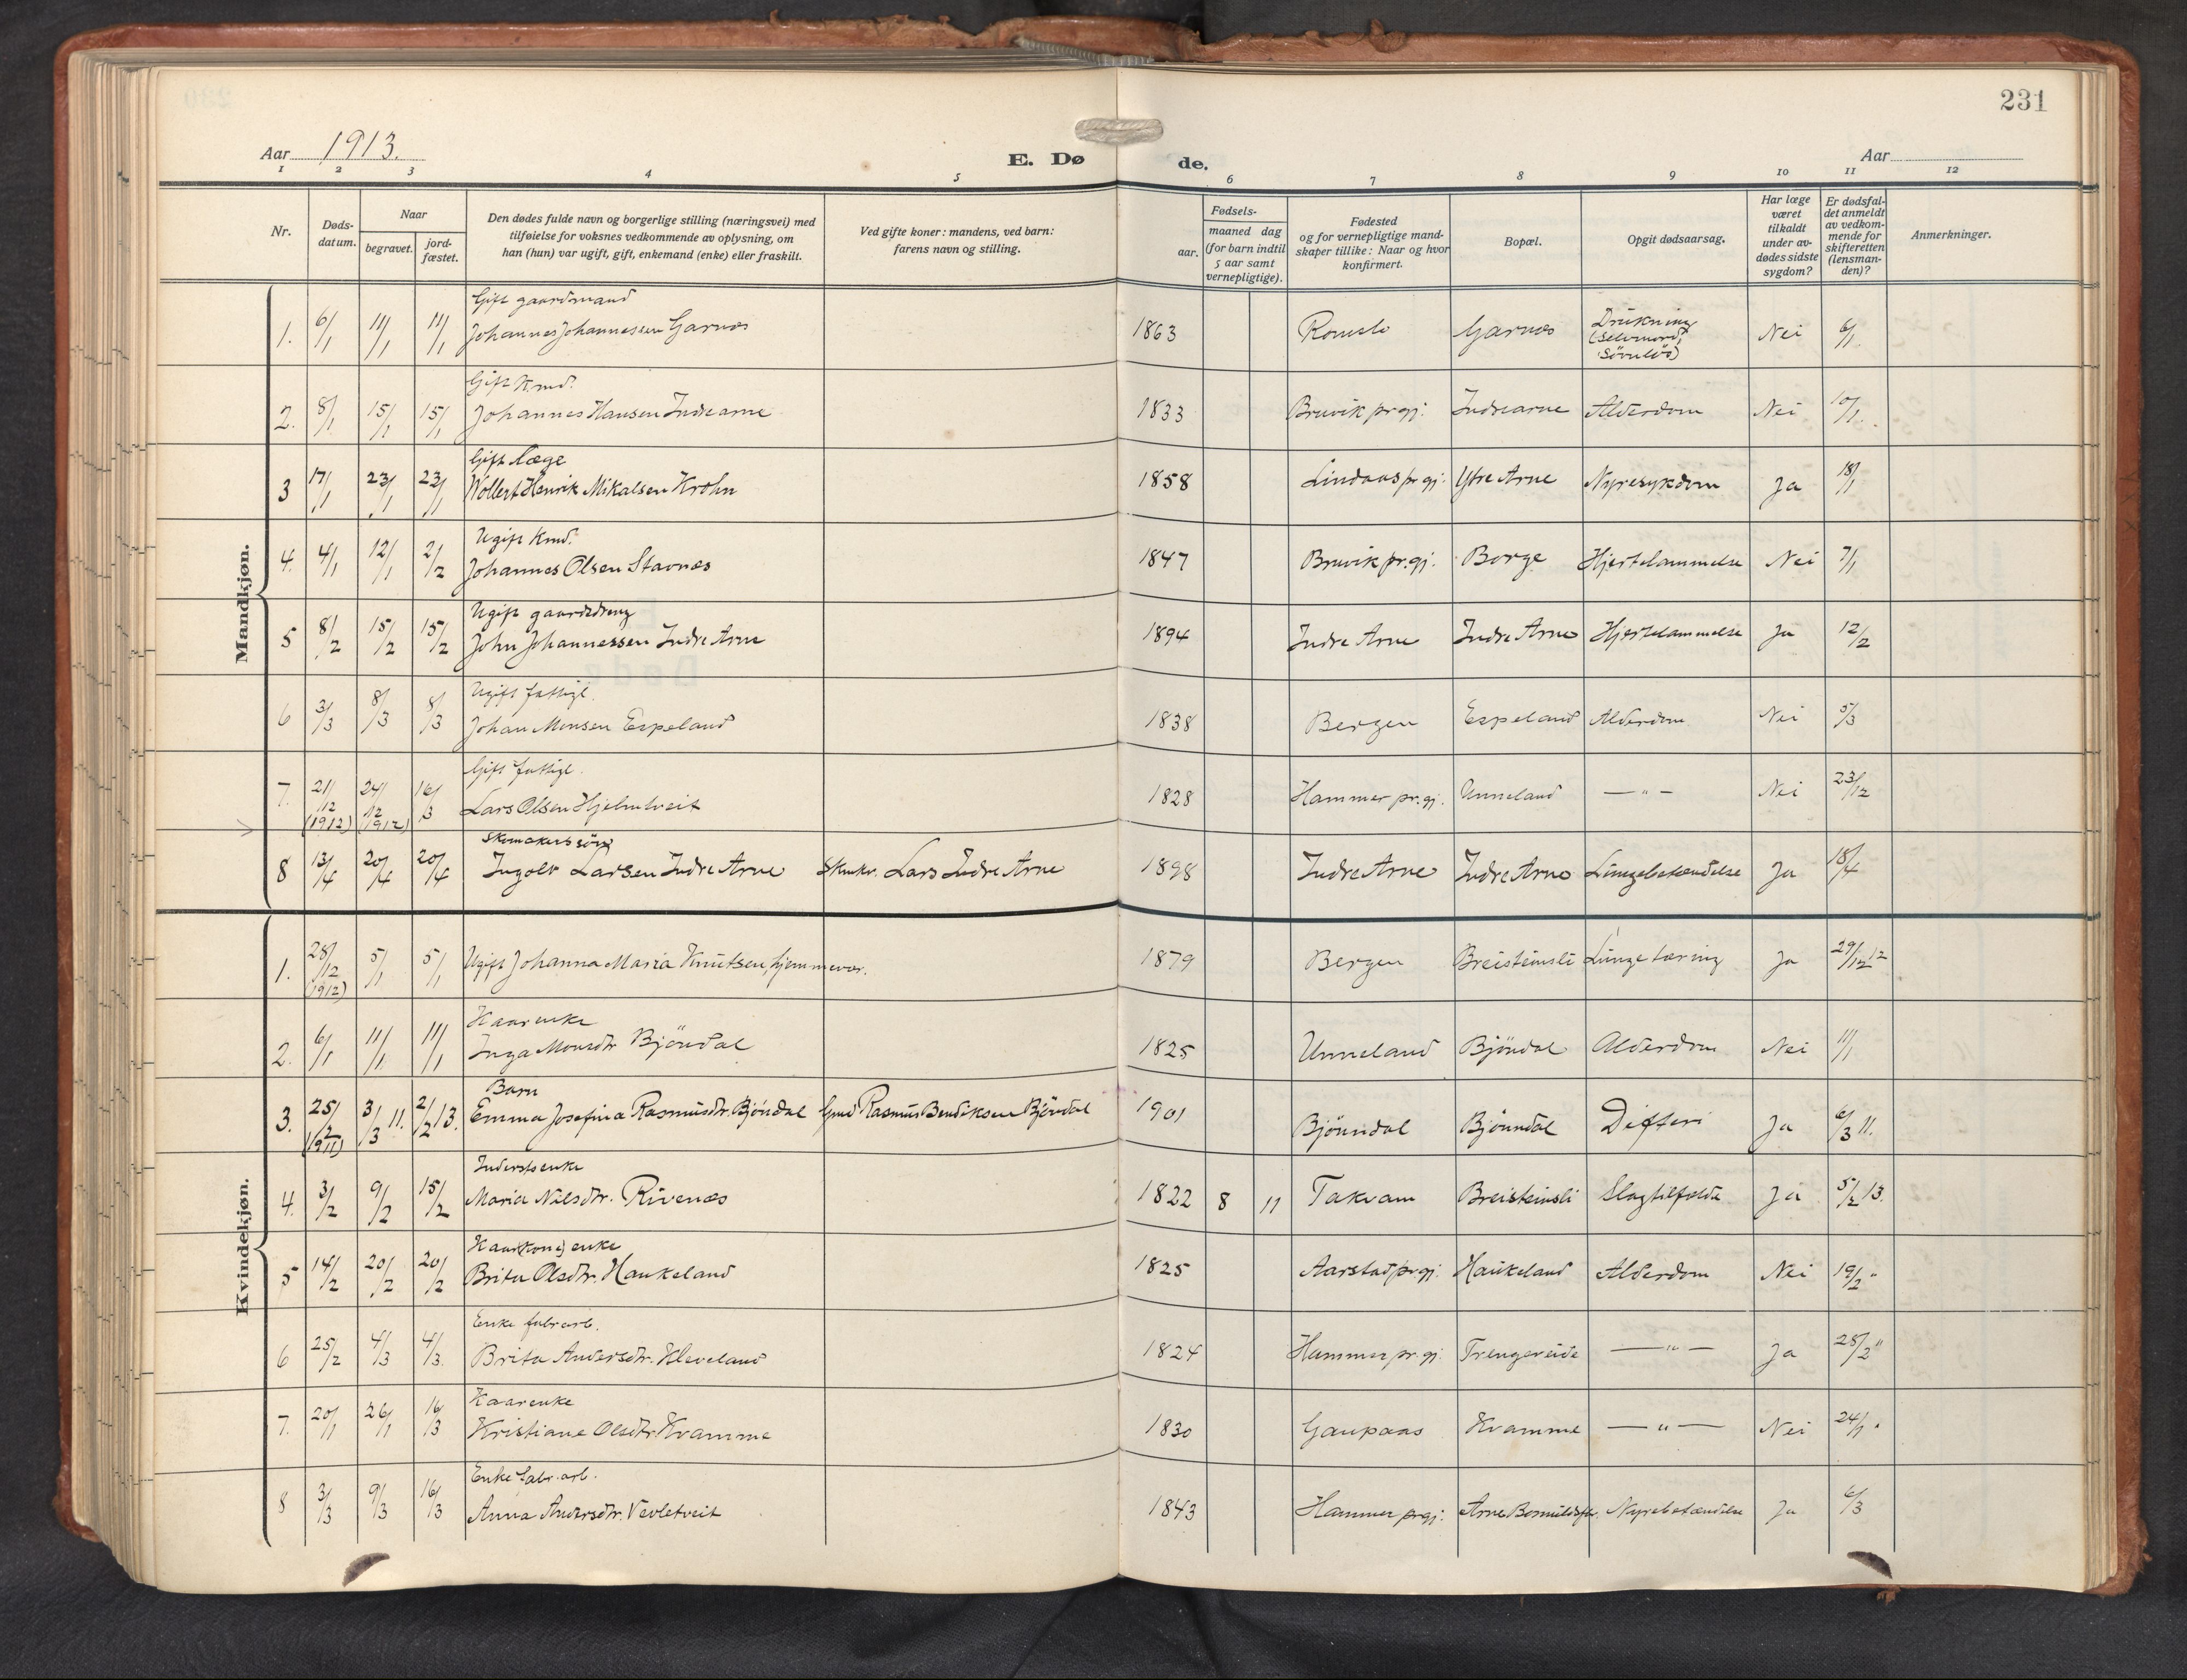 231
Aar 1913.
E. Dø de.
Aar
1 2 3 4 5 6 7 8 9 10 11 12
Nr.
Døds-
datum.
Naar
begravet.
jord-
fæstet.
Den dødes fulde navn og borgerlige stilling (næringsvei) med
tilføielse for voksnes vedkommende av oplysning, om
han (hun) var ugift, gift, enkemand (enke) eller fraskilt.
Ved gifte koner: mandens, ved barn:
farens navn og stilling.
Fødsels-
aar.
maaned dag
(for barn indtil
5 aar samt
vernepligtige).
Fødested
og for vernepligtige mand-
skaper tillike: Naar og hvor
konfirmert.
Bopæl.
Opgit dødsaarsag.
Har læge
været
tilkaldt
under av-
dødes sidste
sygdom?
Er dødsfal-
det anmeldt
av vedkom-
mende for
skifteretten
(lensman-
den)?
Anmerkninger.
Mandkjøn.
Gift gaardmand
1. 6/1 11/1 11/1 Johannes Johannessen Garnæs 1863 Romslo Garnæs Drukning (Selvmord, Nei 6/1
Gift Kmd.
2. 8/1 15/1 15/1 Johannes Hansen Indrearne 1833 Bruvik prgj. Indrearne Alderdom Nei 10/1
Gift Læge
3 17/1 23/1 23/1 Wollert Henrik Mikalsen Krohn 1858 Lindaas prgj. Ytre Arne Nyresykdom Ja 18/1
Ugift Kmd.
4. 4/1 12/1 2/2 Johannes Olsen Stavnæs 1847 Bruvik pr.gj. Borge Hjertelammelse Nei 7/1
Ugift gaardsdreng
5 8/2 15/2 15/2 John Johannessen Indre Arne 1894 Indre Arne Indre Arne Hjertelammelse Ja 12/2
Ugift fattigl.
6 3/3 8/3 8/3 Johan Monsen Espeland 1838 Bergen Espeland Alderdom Nei 5/3
Gift fattigl.
7. 21/12 (1912) 24/12 (1912) 16/3 Lars Olsen Hjelmtveit 1828 Hammer pr.gj. Unneland — " — Nei 23/12
Skomakers søn
8 13/4 20/4 20/4 Ingolv Larsen Indre Arne Skmkr. Lars Indre Arne 1898 Indre Arne Indre Arne Lungebetændelse Ja 18/4
Kvindekjøn.
1. 28/12 (1912) 5/1 5/1 Ugift Johanna Maria Knutsen, hjemmevær. 1879 Bergen Breisteinsli Lungetæring Ja 29/12 12
Kaarenke
2. 6/1 11/1 11/1 Inga Monsdtr Bjöndal 1825 Unneland Bjöndal Alderdom Nei 11/1
Barn
3. 25/2 (1911) 3/3 11. 2/2 13. Emma Josefina Rasmusdtr. Bjöndal Gmd Rasmus Bendiksen Bjöndal 1901 Bjönndal Bjönndal Difteri Ja 6/3 11.
Inderstenke
4. 3/2 9/2 15/2 Maria Nilsdtr. Rivenæs 1822 8 11 Takvam Breisteinsli Slagtilfælde Ja 5/2 13.
Kaar(kone)enke
5 14/2 20/2 20/2 Brita Olsdtr. Haukeland 1825 Aarstad pr.gj. Haukeland Alderdom Nei 19/2 "
Enke fabr.arb.
6 25/2 4/3 4/3. Brita Andersdtr. Kleveland 1824 Hammer pr.gj. Trengereide — " — Ja 28/2 "
Kaarenke
7. 20/1 26/1 16/3 Kristiane Olsdtr. Kvamme 1830 Gaupaas Kvamme — " — Nei 24/1 "
Enke fabr. arb.
8 3/3 9/3 16/3 Anna Andersdtr. Vevletveit 1843 Hammer prgj. Arne Nyrebetændelse Ja 6/3